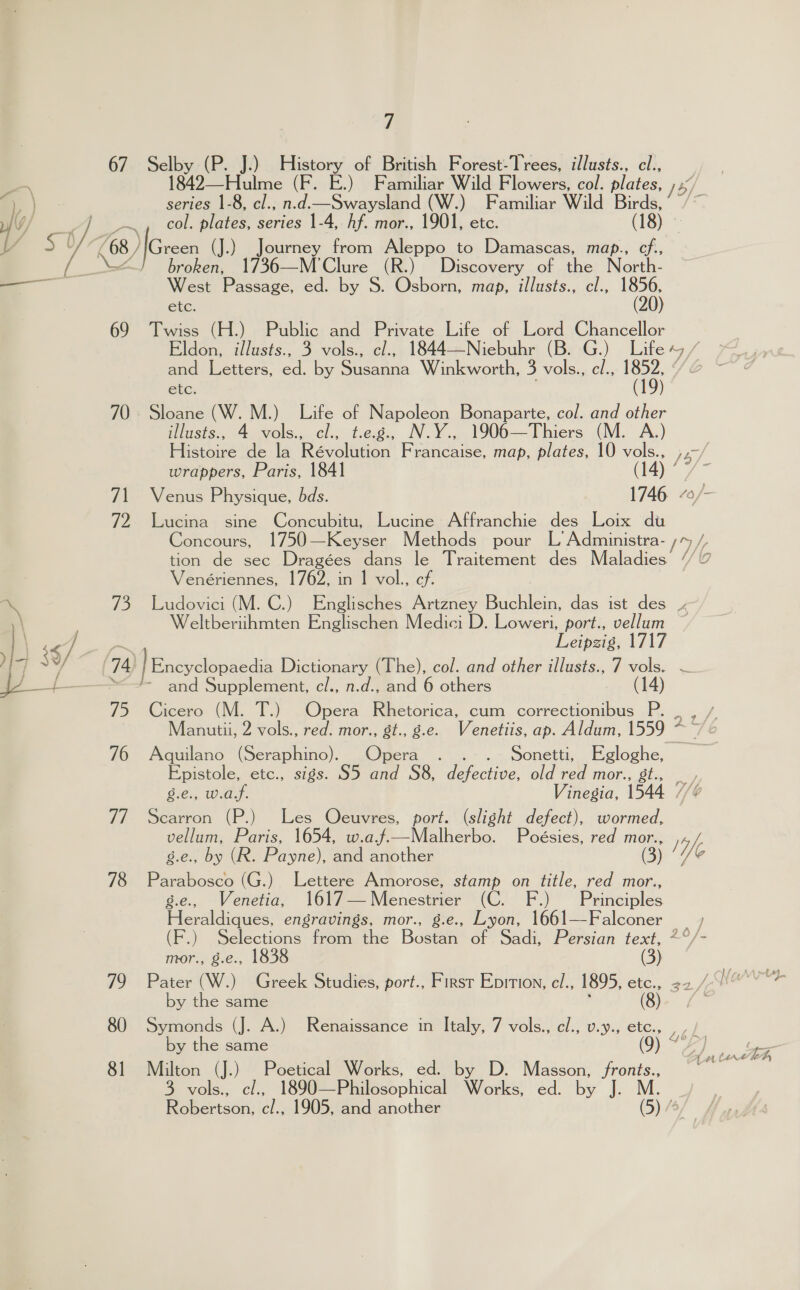 7
67 Selby (P. J.) History of British Forest-Trees, illusts., cl.,
1842—Hulme (F. E.) Familiar Wild Flowers, col. plates,
series 1-8, cl., n.d.—Swaysland (W.) Familiar Wild Birds,
col. plates, series 1-4, hf. mor., 1901, etc. (18)
68 Green (J.) Journey from Aleppo to Damascas, map., cf.,
broken, 1736—M'Clure (R.) Discovery of the North-
West Passage, ed. by S. Osborn, map, illusts., cl., 1856,
etc. (20)
69 Twiss (H.) Public and Private Life of Lord Chancellor
Eldon, illusts., 3 vols., cl., 1844—Niebuhr (B. G.) Life
and Letters, ed. by Susanna Winkworth, 3 vols., cl., 1852,
etc. (19)
70 Sloane (W. M.) Life of Napoleon Bonaparte, col. and other
illusts., 4 vols., cl., t.e.g., N.Y., 1906—Thiers (M. A.)
Histoire de la Révolution Francaise, map, plates, 10 vols.,
wrappers, Paris, 1841 (14)
71 Venus Physique, bds. 1746
72 Lucina sine Concubitu, Lucine Affranchie des Loix du
Concours, 1750—Keyser Methods pour L'Administra-
tion de sec Dragées dans le Traitement des Maladies
Venériennes, 1762, in 1 vol., cf.
73 Ludovici (M. C.) Englisches Artzney Buchlein, das ist des
Weltberiihmten Englischen Medici D. Loweri, port., vellum
Leipzig, 1717
74 Encyclopaedia Dictionary (The), col. and other illusts., 7 vols.
and Supplement, cl., n.d., and 6 others (14)
75 Cicero (M. T.) Opera Rhetorica, cum correctionibus P.
Manutii, 2 vols., red. mor., gt., g.e. Venetiis, ap. Aldum, 1559
76 Aquilano (Seraphino). Opera . . . Sonetti, Egloghe,
Epistole, etc., sigs. S5 and S8, defective, old red mor., gt.,
g.e., w.a.f. Vinegia, 1544
77 Scarron (P.) Les Oeuvres, port. (slight defect), wormed,
vellum, Paris, 1654, w.a.f.—Malherbo. Poésies, red mor.,
g.e., by (R. Payne), and another (3)
78 Parabosco (G.) Lettere Amorose, stamp on title, red mor.,
g.e., Venetia, 1617—Menestrier (C. F.) Principles
Heraldiques, engravings, mor., g.e., Lyon, 1661—Falconer
(F.) Selections from the Bostan of Sadi, Persian text,
mor., g.e., 1838 (3)
79 Pater (W.) Greek Studies, port., First Edition, cl., 1895, etc.,
by the same (8)
80 Symonds (J. A.) Renaissance in Italy, 7 vols., cl., v.y., etc.,
by the same (9)
81 Milton (J.) Poetical Works, ed. by D. Masson, fronts.,
3 vols., cl., 1890—Philosophical Works, ed. by J. M.
Robertson, cl., 1905, and another (5)